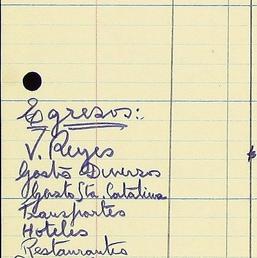 Egresos:.
V. Reyes
Gasto Diversos
Gasto Sta. Catalina
Transportes
Hoteles
Restaurantes
$